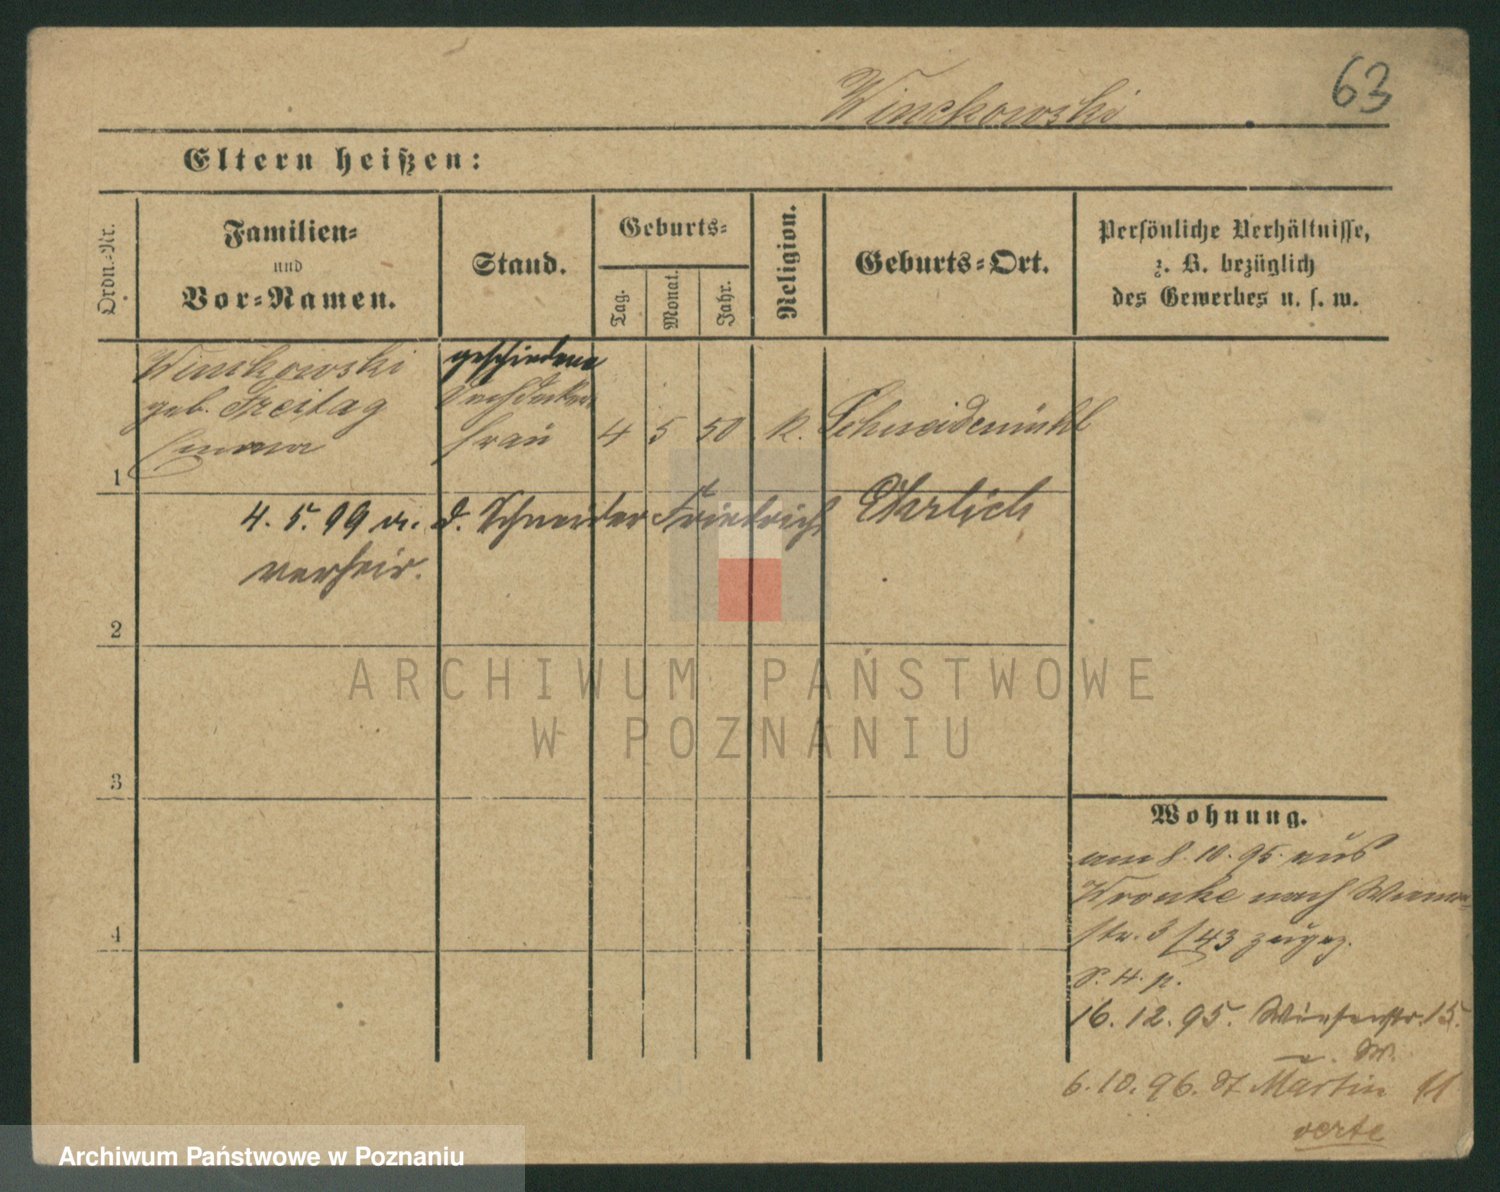 63
Winckowski
Eltern heißen:
Ordn.-Nr.
Familien-
und
Vor-Namen.
Stand.
Geburts-
Tag.
Monat.
Jahr.
Religion.
Geburts-Ort.
Persönliche Verhältnisse,
z. B. bezüglich
des Gewerbes u. s. w.
1
Winckowski
geb. Freitag
Emma
geschiedene
frau
4
5
50
k.
Schneidemühl
4. 5. 99 m. d. Schneider Friedrich Ehrlich
verheir.
2
3
4
Wohnung.
am 8. 10. 95. aus
Wronke nach
str. 8/43 zugez.
16. 12. 95. Wiesenstr. 15.
6. 10. 96. St Martin 11
verte
ARCHIWUM PAŃSTWOWE
W POZNANIU
Archiwum Państwowe w Poznaniu